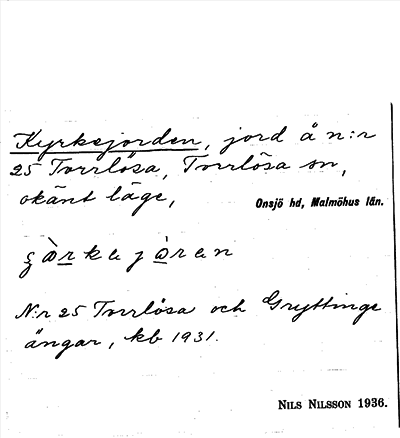 Kyrkejorden, jord å n:r
25 Torrlösa, Torrlösa sn,
okänt läge,
Onsjö hd, Malmöhus län.
N:r 25 Torrlösa och Gryttinge
ängar, kb 1931.
NILS NILSSON 1936.